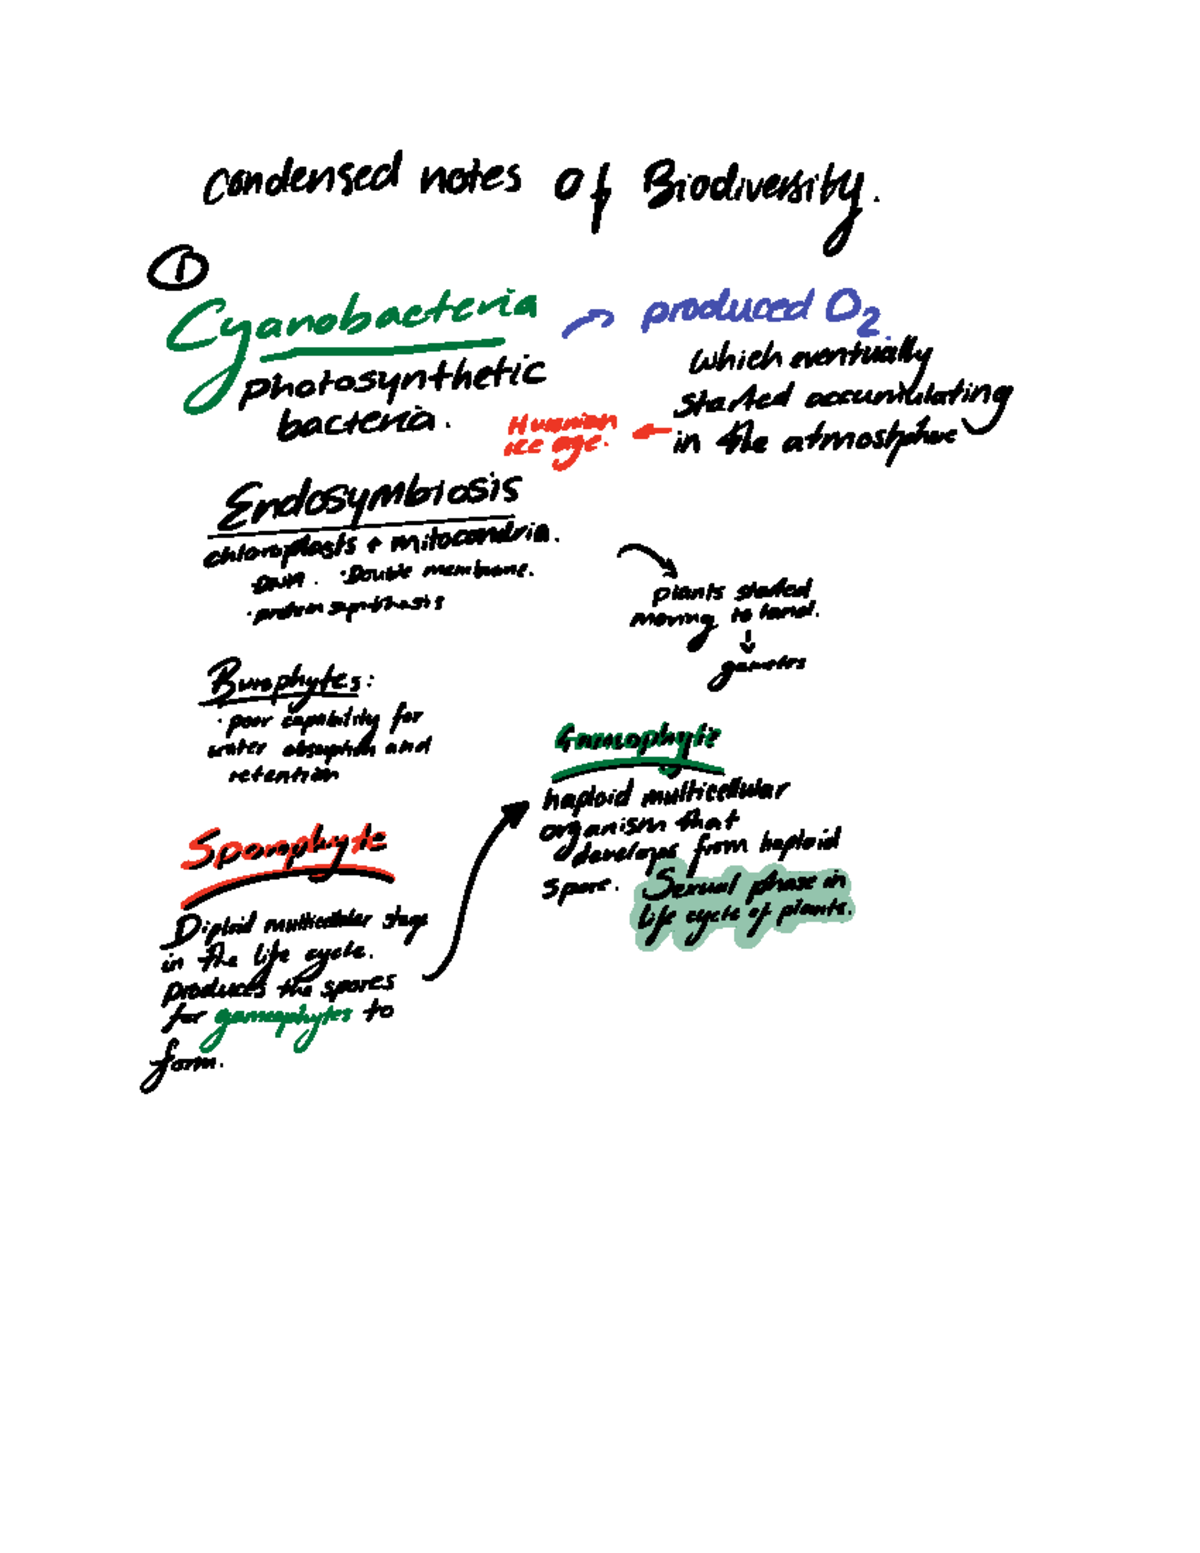 condensed notes of Biodiversity.
1
Cyanobacteria
photosynthetic
bacteria.
produced O2.
which eventually
started accumulating
in the atmosphere
Huronian
ice age.
Endosymbiosis
chloroplasts + mitocondria.
DNA. · Double membrane.
· protein synthasis
plants started
moving to land.
↓
gametes
Bryophytes:
· poor capability for
water absorption and
retention
Sporophyte
Diploid multicellular stage
in the life cycle.
produces the spores
for gameophytes to
form.
Gameophyte
haploid multicellular
organism that
develops from haploid
spore. Sexual phase in
life cycle of plants.